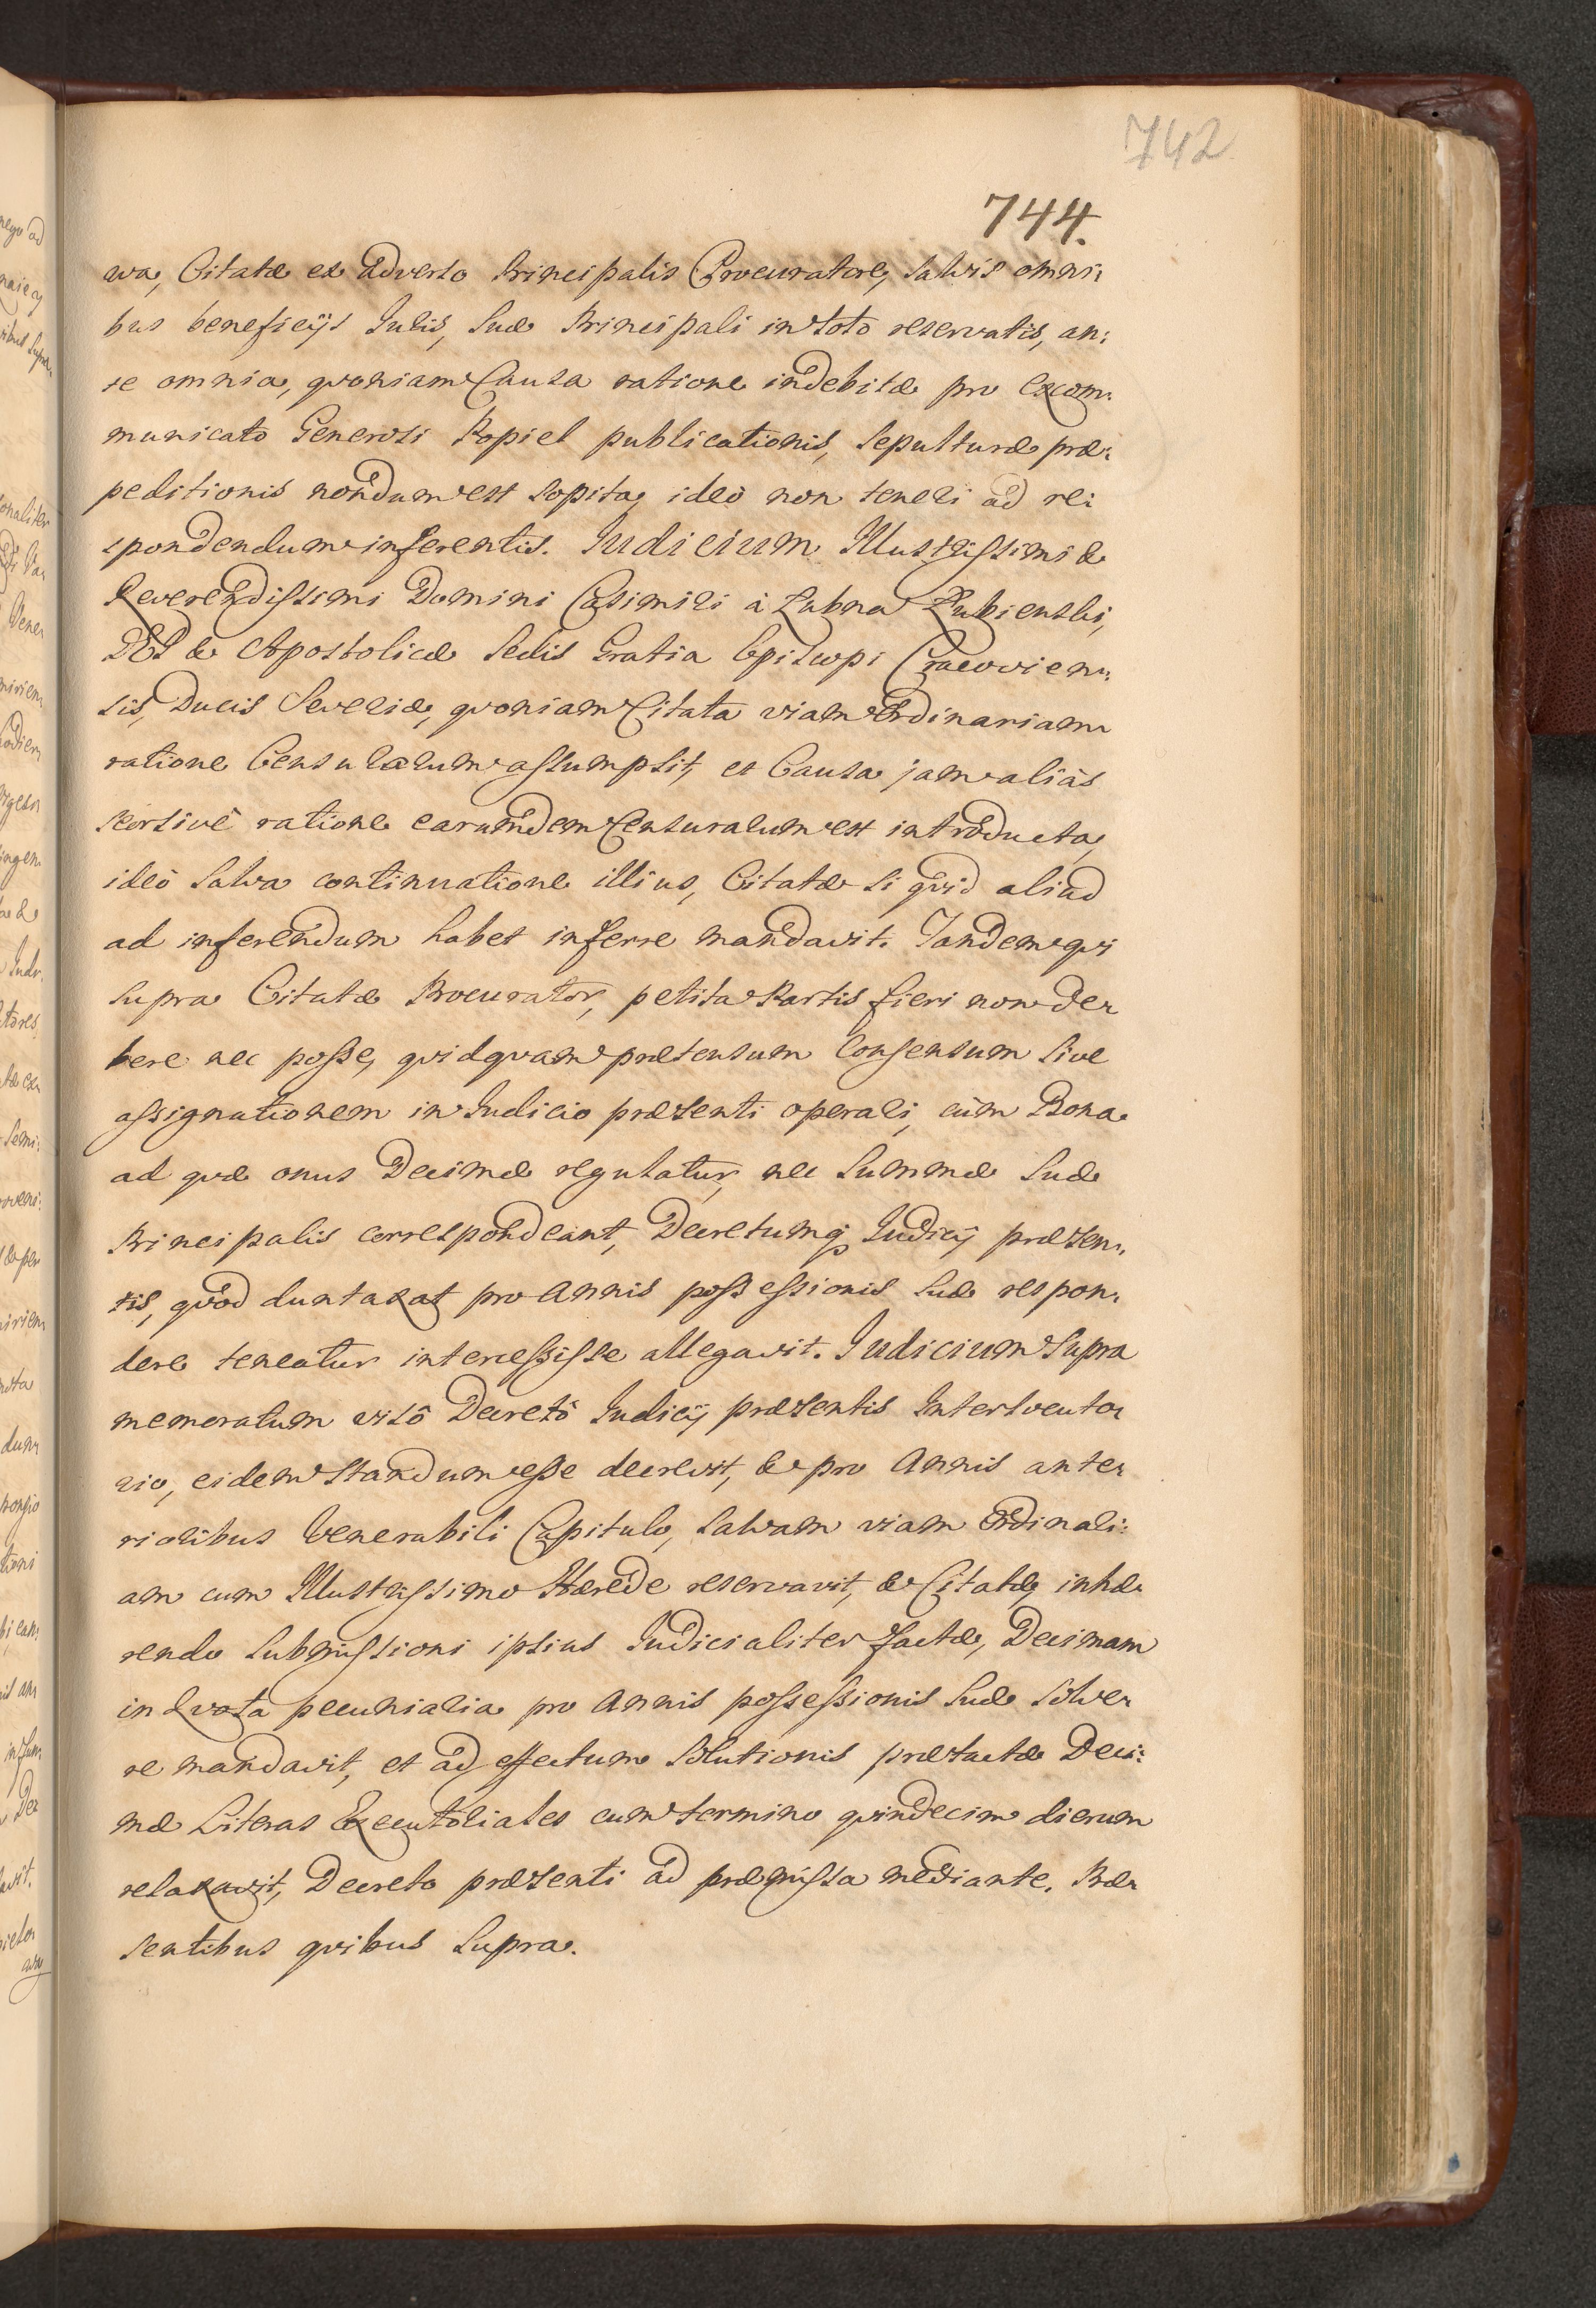 742
744.
wa, Citatæ ex adverso Principalis Procuratore, salvis omni:
bus beneficijs Juris, suæ Principali in toto reservatis, an:
te omnia, qvoniam Causa ratione indebitæ pro excom:
municato Generosi Popiel publicationis, sepulturæ præ:
peditionis nondum est sopita, ideò non teneri ad re:
spondendum inferentis. Judicium Illustrissimi &
Reverendissimi Domini Casimiri à Łubna Łubienski,
DEI & Apostolicæ Sedis Gratia Episcopi Cracovien:
sis, Ducis Severiæ, qvoniam Citata viam Ordinariam
ratione Censurarum assumpsit, et Causa jam aliàs
seorsivè ratione earumdem Censurarum est introducta,
ideò salva continuatione illius, Citatæ si qvid aliud
ad inferendum habet inferre mandavit. Tandem qvi
supra Citatæ Procurator, petita Partis fieri non de:
bere nec posse, qvidqvam prætensum Consensum sive
assignationem in Judicio præsenti operari, cùm Bona
ad qvæ onus Decimæ regulatur, nec Summæ suæ
Principalis correspondeant, Decretumq Judicij præsen:
tis, qvòd duntaxat pro Annis possessionis suæ respon:
dere teneatur intercessisse allegavit. Judicium supra
memoratum visô Decretô Judicij præsentis Interlocuto:
rio, eidem standum esse decrevit, & pro Annis ante:
rioribus Venerabili Capitulo, salvam viam Ordinari:
am cum Illustrissimo Hærede reservavit, & Citatæ, inhæ:
rendo submissioni ipsius Judicialiter factæ, Decimam
in Qvota pecuniaria pro Annis possessionis suæ solve:
re mandavit, et ad effectum Solutionis prætactæ Deci:
mæ Literas Executoriales cum termino qvindecim dierum
relaxavit, Decreto præsenti ad præmissa mediante. Præ:
sentibus qvibus supra.